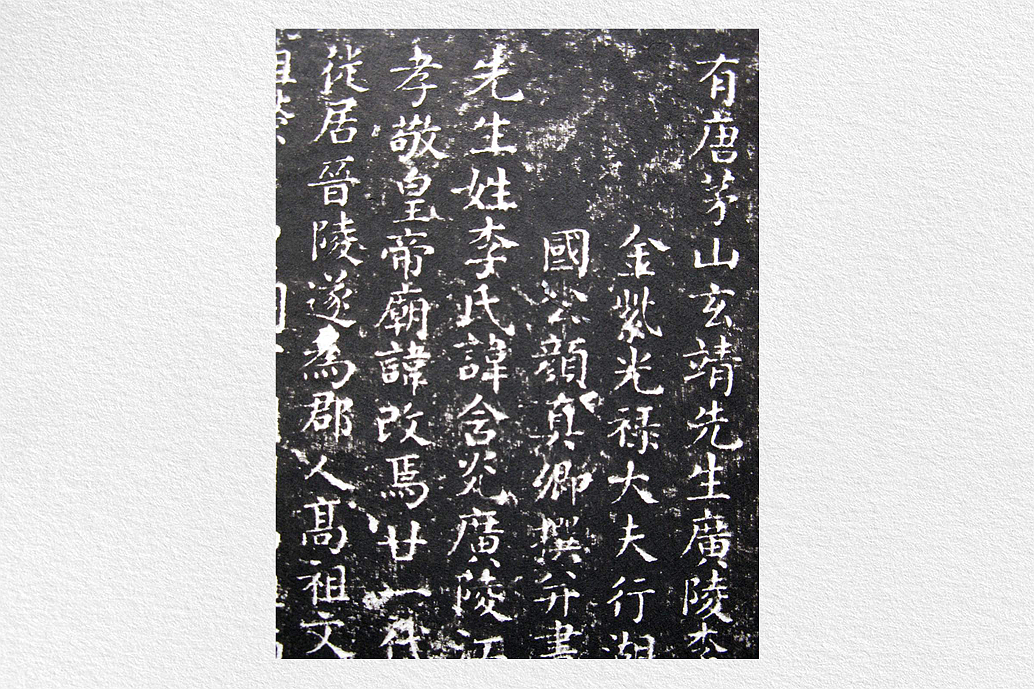 有唐茅山玄靖先生廣陵李
金紫光祿大夫行湖
國公顏真卿撰并書
先生姓李氏諱含光廣陵江
孝敬皇帝廟諱改焉廿一代
徙居晉陵遂為郡人高祖文